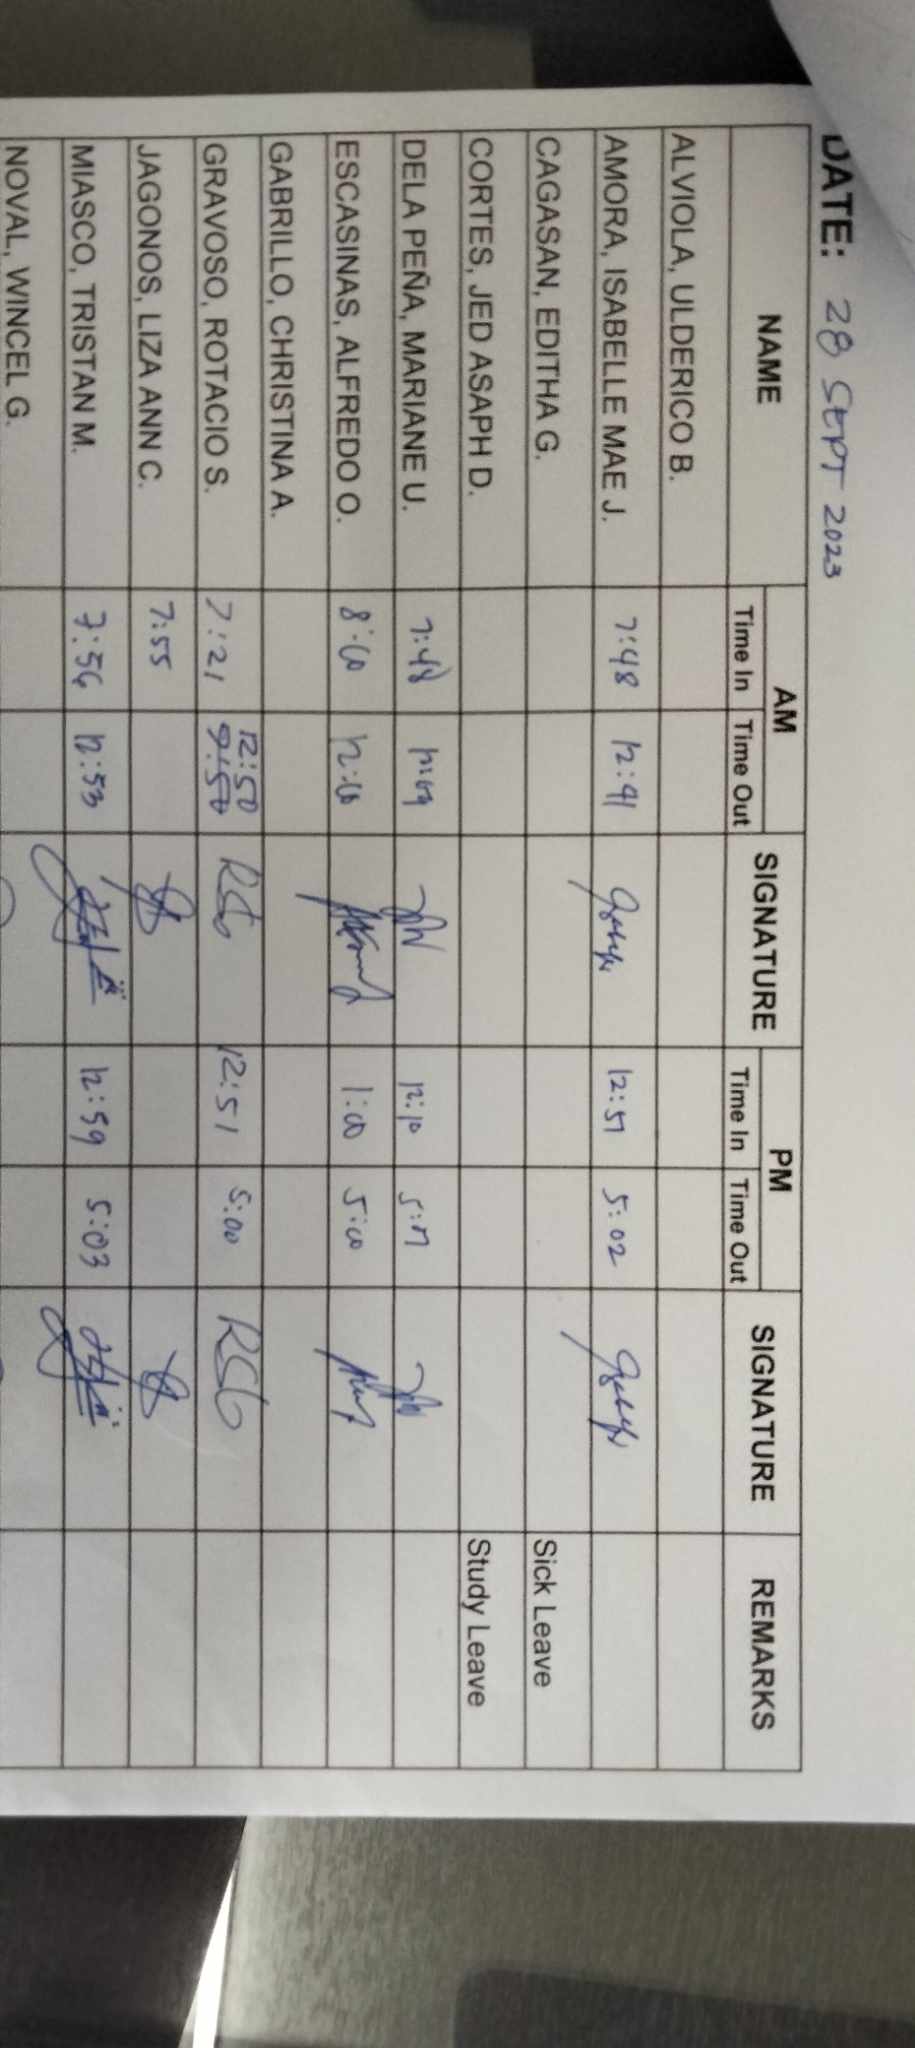 DATE: 28 SEPT 2023
NAME AM SIGNATURE PM SIGNATURE REMARKS
Time In Time Out Time In Time Out
ALVIOLA, ULDERICO B.
AMORA, ISABELLE MAE J. 7:48 12:41 12:51 5:02
CAGASAN, EDITHA G. Sick Leave
CORTES, JED ASAPH D. Study Leave
DELA PEÑA, MARIANE U. 7:48 12:09 12:10 5:17
ESCASINAS, ALFREDO O. 8:00 12:00 1:00 5:00
GABRILLO, CHRISTINA A.
GRAVOSO, ROTACIO S. 7:21 12:50 9:50 RSG 12:51 5:00 RSG
JAGONOS, LIZA ANN C. 7:55
MIASCO, TRISTAN M. 7:56 12:53 12:59 5:03
NOVAL, WINCEL G.